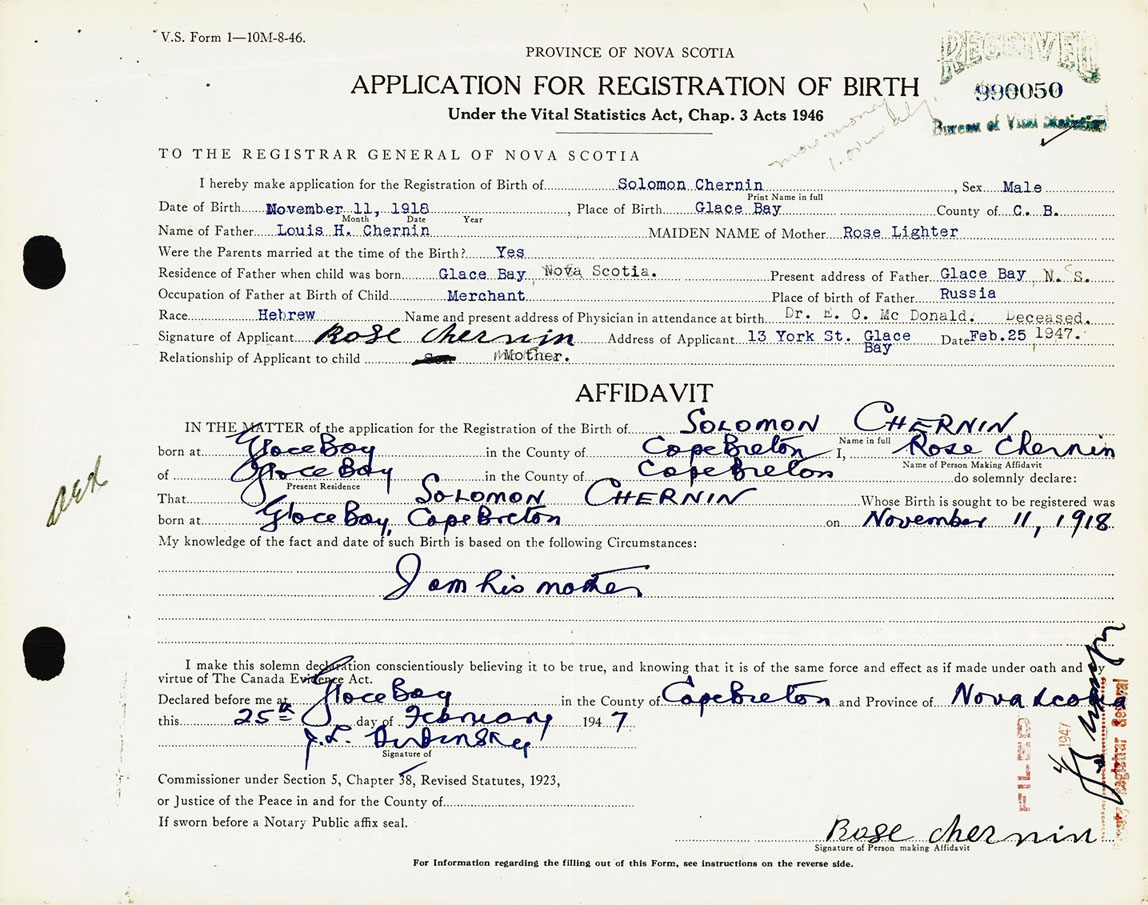 V.S. Form 1—10M-8-46.
PROVINCE OF NOVA SCOTIA
RECEIVED
APPLICATION FOR REGISTRATION OF BIRTH
990050
Under the Vital Statistics Act, Chap. 3 Acts 1946
Bureau of Vital Statistics
TO THE REGISTRAR GENERAL OF NOVA SCOTIA
I hereby make application for the Registration of Birth of Solomon Chernin, Sex Male
Print Name in full
Date of Birth November 11, 1918, Place of Birth Glace Bay County of C. B.
Month Date Year
Name of Father Louis H. Chernin MAIDEN NAME of Mother Rose Lighter
Were the Parents married at the time of the Birth? Yes
Residence of Father when child was born Glace Bay, Nova Scotia. Present address of Father Glace Bay, N. S.
Occupation of Father at Birth of Child Merchant Place of birth of Father Russia
Race Hebrew Name and present address of Physician in attendance at birth Dr. E. O. Mc Donald. Deceased.
Signature of Applicant Rose Chernin Address of Applicant 13 York St. Glace Bay Date Feb.25 1947.
Relationship of Applicant to child Son Mother.
AFFIDAVIT
IN THE MATTER of the application for the Registration of Birth of Solomon Chernin
Name in full
born at Glace Bay in the County of Cape Breton I, Rose Chernin
Name of Person Making Affidavit
of Glace Bay in the County of Cape Breton do solemnly declare:
Present Residence
That Solomon Chernin Whose Birth is sought to be registered was
born at Glace Bay, Cape Breton on November 11, 1918
My knowledge of the fact and date of such Birth is based on the following Circumstances:
I am his mother
I make this solemn declaration conscientiously believing it to be true, and knowing that it is of the same force and effect as if made under oath and by
virtue of The Canada Evidence Act.
Declared before me at Glace Bay in the County of Cape Breton and Province of Nova Scotia
this 25th day of February 1947
J. L. Dubinsky
Signature of
Commissioner under Section 5, Chapter 38, Revised Statutes, 1923,
or Justice of the Peace in and for the County of
If sworn before a Notary Public affix seal.
FILED
1947
Registrar General
Rose Chernin
Signature of Person making Affidavit
For Information regarding the filling out of this Form, see instructions on the reverse side.